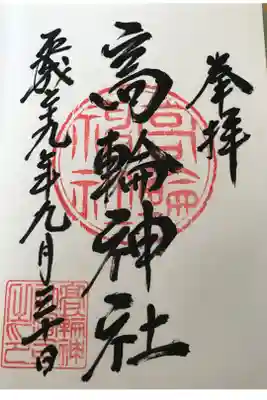 奉拝
高輪神社
平成二十九年九月三十日